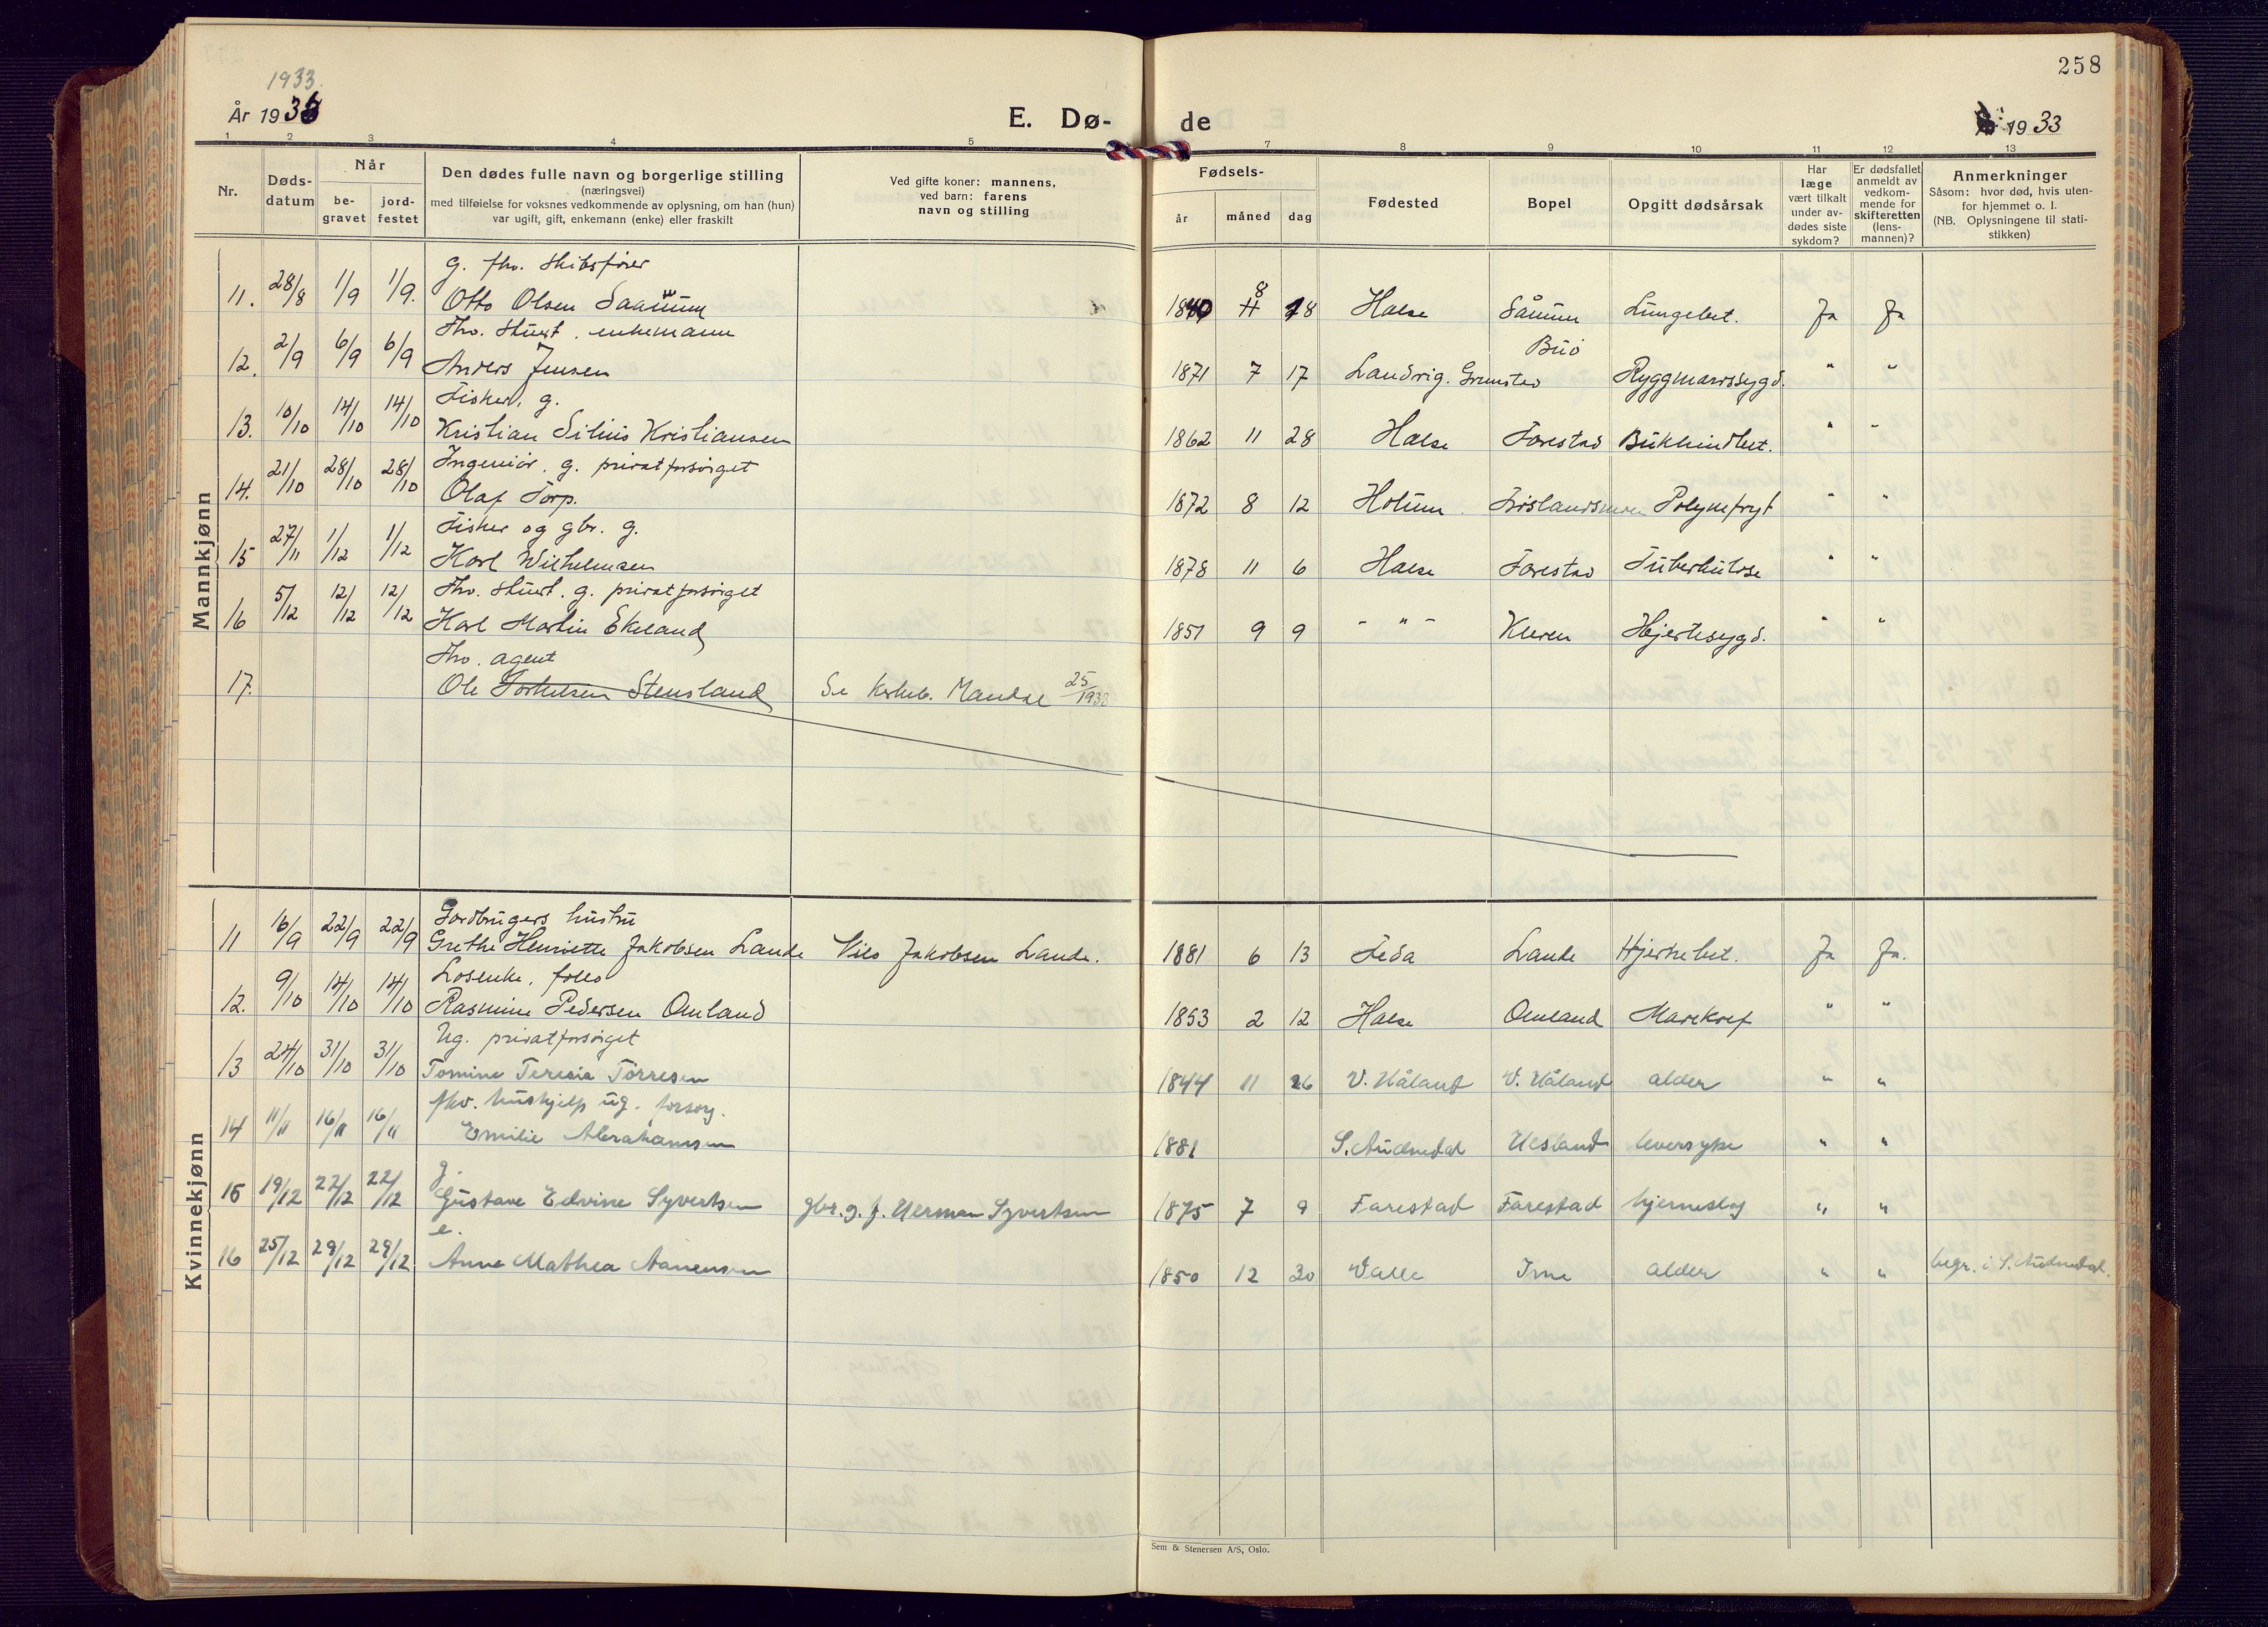 258
1933.
År 1933
E. Dø-
de
19 33
1 2 3 4 5 7 8 9 10 11 12 13
Nr.
Døds-
datum
Når
be-
gravet
jord-
festet
Den dødes fulle navn og borgerlige stilling
(næringsvei)
med tilføielse for voksnes vedkommende av oplysning, om han (hun)
var ugift, gift, enkemann (enke) eller fraskilt
Ved gifte koner: mannens,
ved barn: farens
navn og stilling
Fødsels-
år måned dag
Fødested
Bopel
Opgitt dødsårsak
Har
læge
vært tilkalt
under av-
dødes siste
sykdom?
Er dødsfallet
anmeldt av
vedkom-
mende for
skifteretten
(lens-
mannen)?
Anmerkninger
Såsom: hvor død, hvis uten-
for hjemmet o. l.
(NB. Oplysningene til stati-
stikken)
Mannkjønn
g. fhv. skibsfører
11. 28/8 1/9 1/9. Otto Olsen Saanum 1840 8 18 Halse Sånum Lungebet. Ja Ja
Fhv. skuest. enkemann
12. 2/9 6/9 6/9 Anders Jensen 1871 7 17 Landvig. Grimstad Buø Ryggmarvssygd. " "
Fisker, g.
13. 10/10 14/10 14/10 Kristian Silius Kristiansen 1862 11 28 Halse Farestad Bukhindbet. " "
Ingeniør. g. privatforsørget
14. 21/10 28/10 28/10 Olaf Torp. 1872 8 12 Holum " "
Fisker og gbr. g.
15 27/11 1/12 1/12 Karl Wilhelmsen 1878 11 6 Halse Farestad Tuberkulose " "
Fhv. skuest. g. privatforsørget
16 5/12 12/12 12/12 Karl Martin Ekeland 1851 9 9 - " - Kleven Hjertesygd. " "
Fhv. agent
17. Ole Torkelsen Stensland Se kirkeb. Mandal 25/1933
Kvinnekjønn
Gardbrugers hustru
11 16/9 22/9 22/9 Grethe Henriette Jakobsen Lande Nils Jakobsen Lande. 1881 6 13 Feda Lande Hjertebet. Ja Ja.
Losenke,
12. 9/10 14/10 14/10 Rasmine Pedersen Omland 1853 2 12 Halse Omland Mavekref " "
Ug. privatforsørget
13 24/10 31/10 31/10 Tomine Teresia Tørresen 1844 11 26 V. Håland V. Håland alder " "
fhv. hushjelp ug. forsørg.
14 11/11 16/11 16/11 Emilie Abrahamsen 1881 S. Audnedal Uesland leversyke " "
g.
15 19/12 22/12 22/12 Gustave Edvine Syvertsen gbr. g. f. Herman Syvertsen 1875 7 9 Farestad Farestad hjerneslag " "
e.
16 25/12 29/12 29/12 Anne Mathea Aanensen 1850 12 30 Valle Ime alder " " begr. i S. Audnedal.
Sem & Stenersen A/S, Oslo.